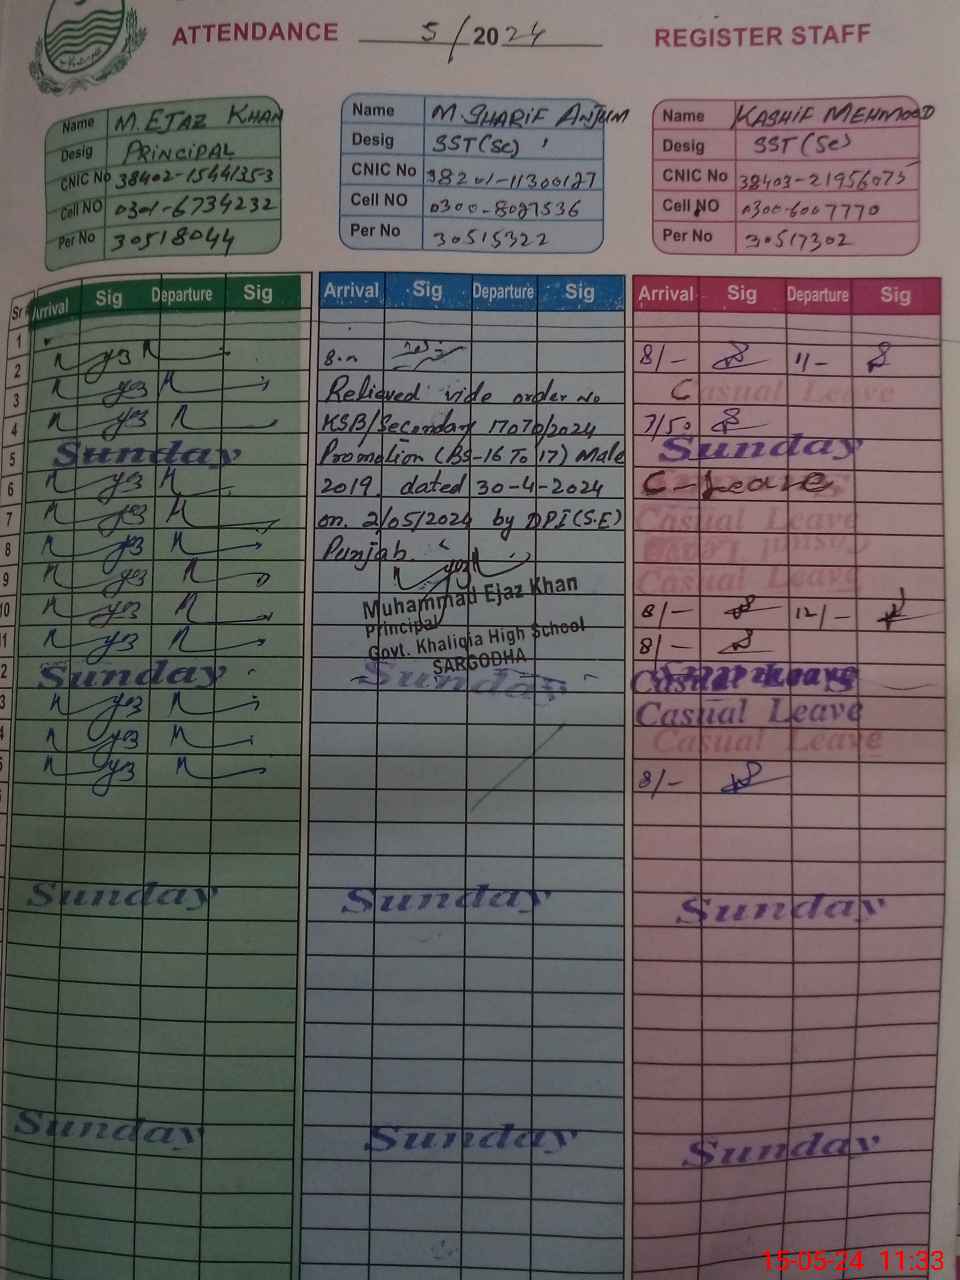 ATTENDANCE 5/2024 REGISTER STAFF
Name M. EJAZ KHAN
Desig PRINCIPAL
CNIC No 38402-1544135-3
Cell NO 0301-6734232
Per No 30518044
Name M. SHARIF ANJUM
Desig SST(Sc)
CNIC No 38201-11300127
Cell NO 0300-8027536
Per No 30515322
Name KASHIF MEHMOOD
Desig SST(Sc)
CNIC No 38403-21956075
Cell NO 0300-6007770
Per No 30517302
Sr Arrival Sig Departure Sig
1
2
3
4
5 Sunday
6
7
8
9
10
11
12 Sunday
13
14
15
Sunday
Sunday
Arrival Sig Departure Sig
Relieved vide order No
KSB/Secondary 17070/2024
Promotion (BS-16 To 17) Male
2019 dated 30-4-2024
on 2/05/2024 by DPI(S.E)
Punjab
Muhammad Ejaz Khan
Principal
Govt. Khaliqia High School
SARGODHA
Sunday
Sunday
Sunday
Arrival Sig Departure Sig
8/- 11/-
Casual Leave
7/50
Sunday
C-Leave
Casual Leave
Casual Leave
Casual Leave
8/- 12/-
8/-
Casual Leave
Casual Leave
Casual Leave
8/-
Sunday
Sunday
15-05-24 11:33